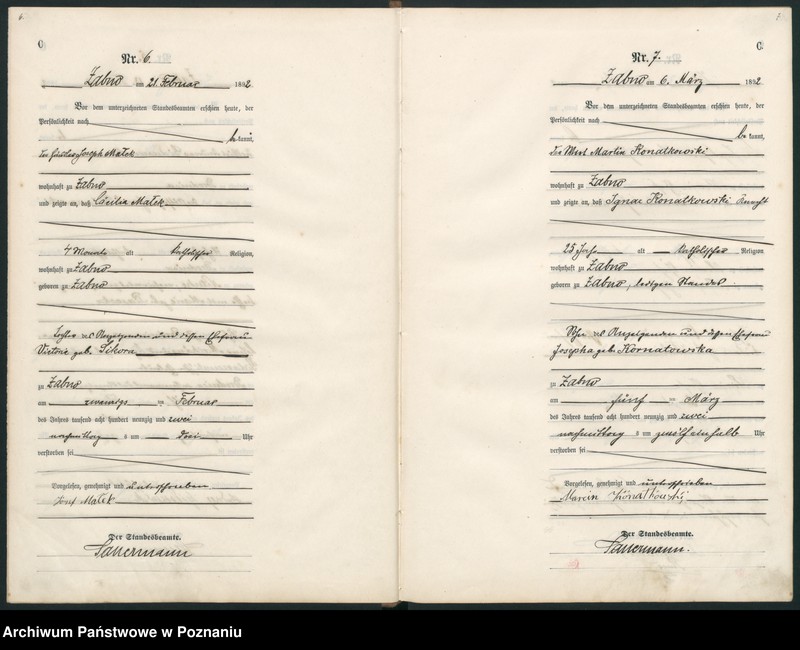 6.
C
Nr. 6.
Żabno am 21. Februar 1892
Vor dem unterzeichneten Standesbeamten erschien heute, der
Persönlichkeit nach
be kannt,
der Häusler Joseph Małek
wohnhaft zu Żabno
und zeigte an, daß Cäcilia Małek
4 Monate alt katholischer Religion,
wohnhaft zu Żabno
geboren zu Żabno
Tochter des Anzeigenden und dessen Ehefrau
Victorie geb. Sikora
zu Żabno
am zwanzigsten Februar
des Jahres tausend acht hundert neunzig und zwei
nachmittags um drei Uhr
verstorben sei
Vorgelesen, genehmigt und unterschrieben
Josef Małek
Der Standesbeamte.
Sauermann
C
Nr. 7.
Żabno am 6. März 1892
Vor dem unterzeichneten Standesbeamten erschien heute, der
Persönlichkeit nach
be kannt,
der Wirt Martin Konalkowski
wohnhaft zu Żabno
und zeigte an, daß Ignac Konalkowski Knecht
25 Jahr alt katholischer Religion
wohnhaft zu Żabno
geboren zu Żabno, ledigen Standes
Sohn des Anzeigenden und dessen Ehefrau
Josepha geb. Kornatowska
zu Żabno
am fünften März
des Jahres tausend acht hundert neunzig und zwei
nachmittags um zwölfeinhalb Uhr
verstorben sei
Vorgelesen, genehmigt und unterschrieben
Marcin Kónalkowskj
Der Standesbeamte.
Sauermann.
Archiwum Państwowe w Poznaniu